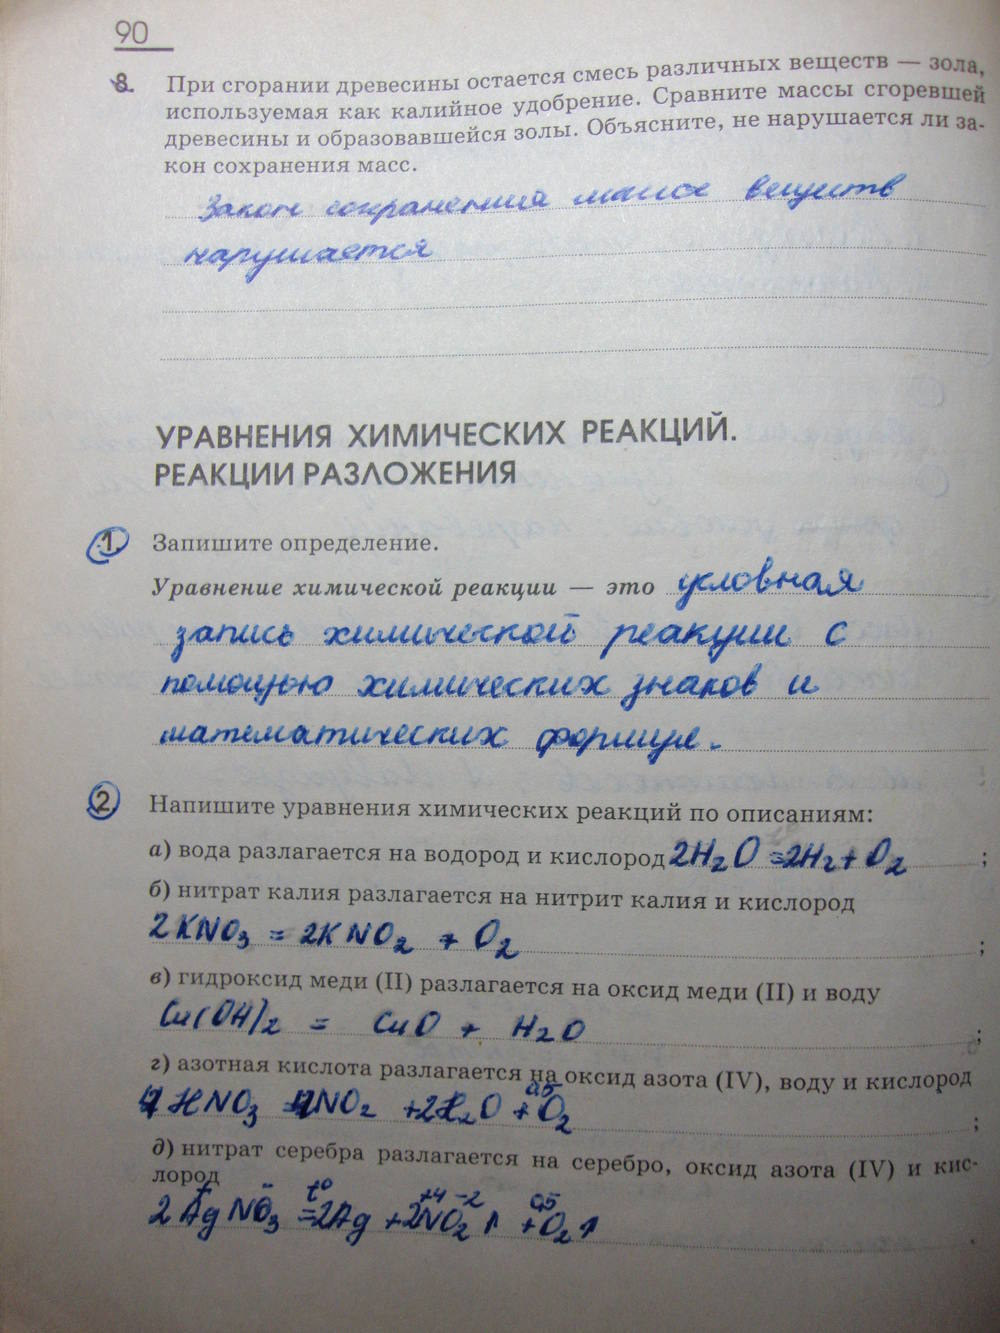 90
8. При сгорании древесины остается смесь различных веществ — зола,
используемая как калийное удобрение. Сравните массы сгоревшей
древесины и образовавшейся золы. Объясните, не нарушается ли за-
кон сохранения масс.
Закон сохранения массе веществ
нарушается
УРАВНЕНИЯ ХИМИЧЕСКИХ РЕАКЦИЙ.
РЕАКЦИИ РАЗЛОЖЕНИЯ
1. Запишите определение.
Уравнение химической реакции — это условная
запись химической реакции с
помощью химических знаков и
математических формул.
2 Напишите уравнения химических реакций по описаниям:
а) вода разлагается на водород и кислород 2H2O = 2H2 + O2 ;
б) нитрат калия разлагается на нитрит калия и кислород
2KNO3 = 2KNO2 + O2 ;
в) гидроксид меди (II) разлагается на оксид меди (II) и воду
Cu(OH)2 = CuO + H2O ;
г) азотная кислота разлагается на оксид азота (IV), воду и кислород
4HNO3 = 4NO2 + 2H2O + O2 ;
д) нитрат серебра разлагается на серебро, оксид азота (IV) и кис-
лород
2AgNO3 = 2Ag + 2NO2↑ + O2↑ .